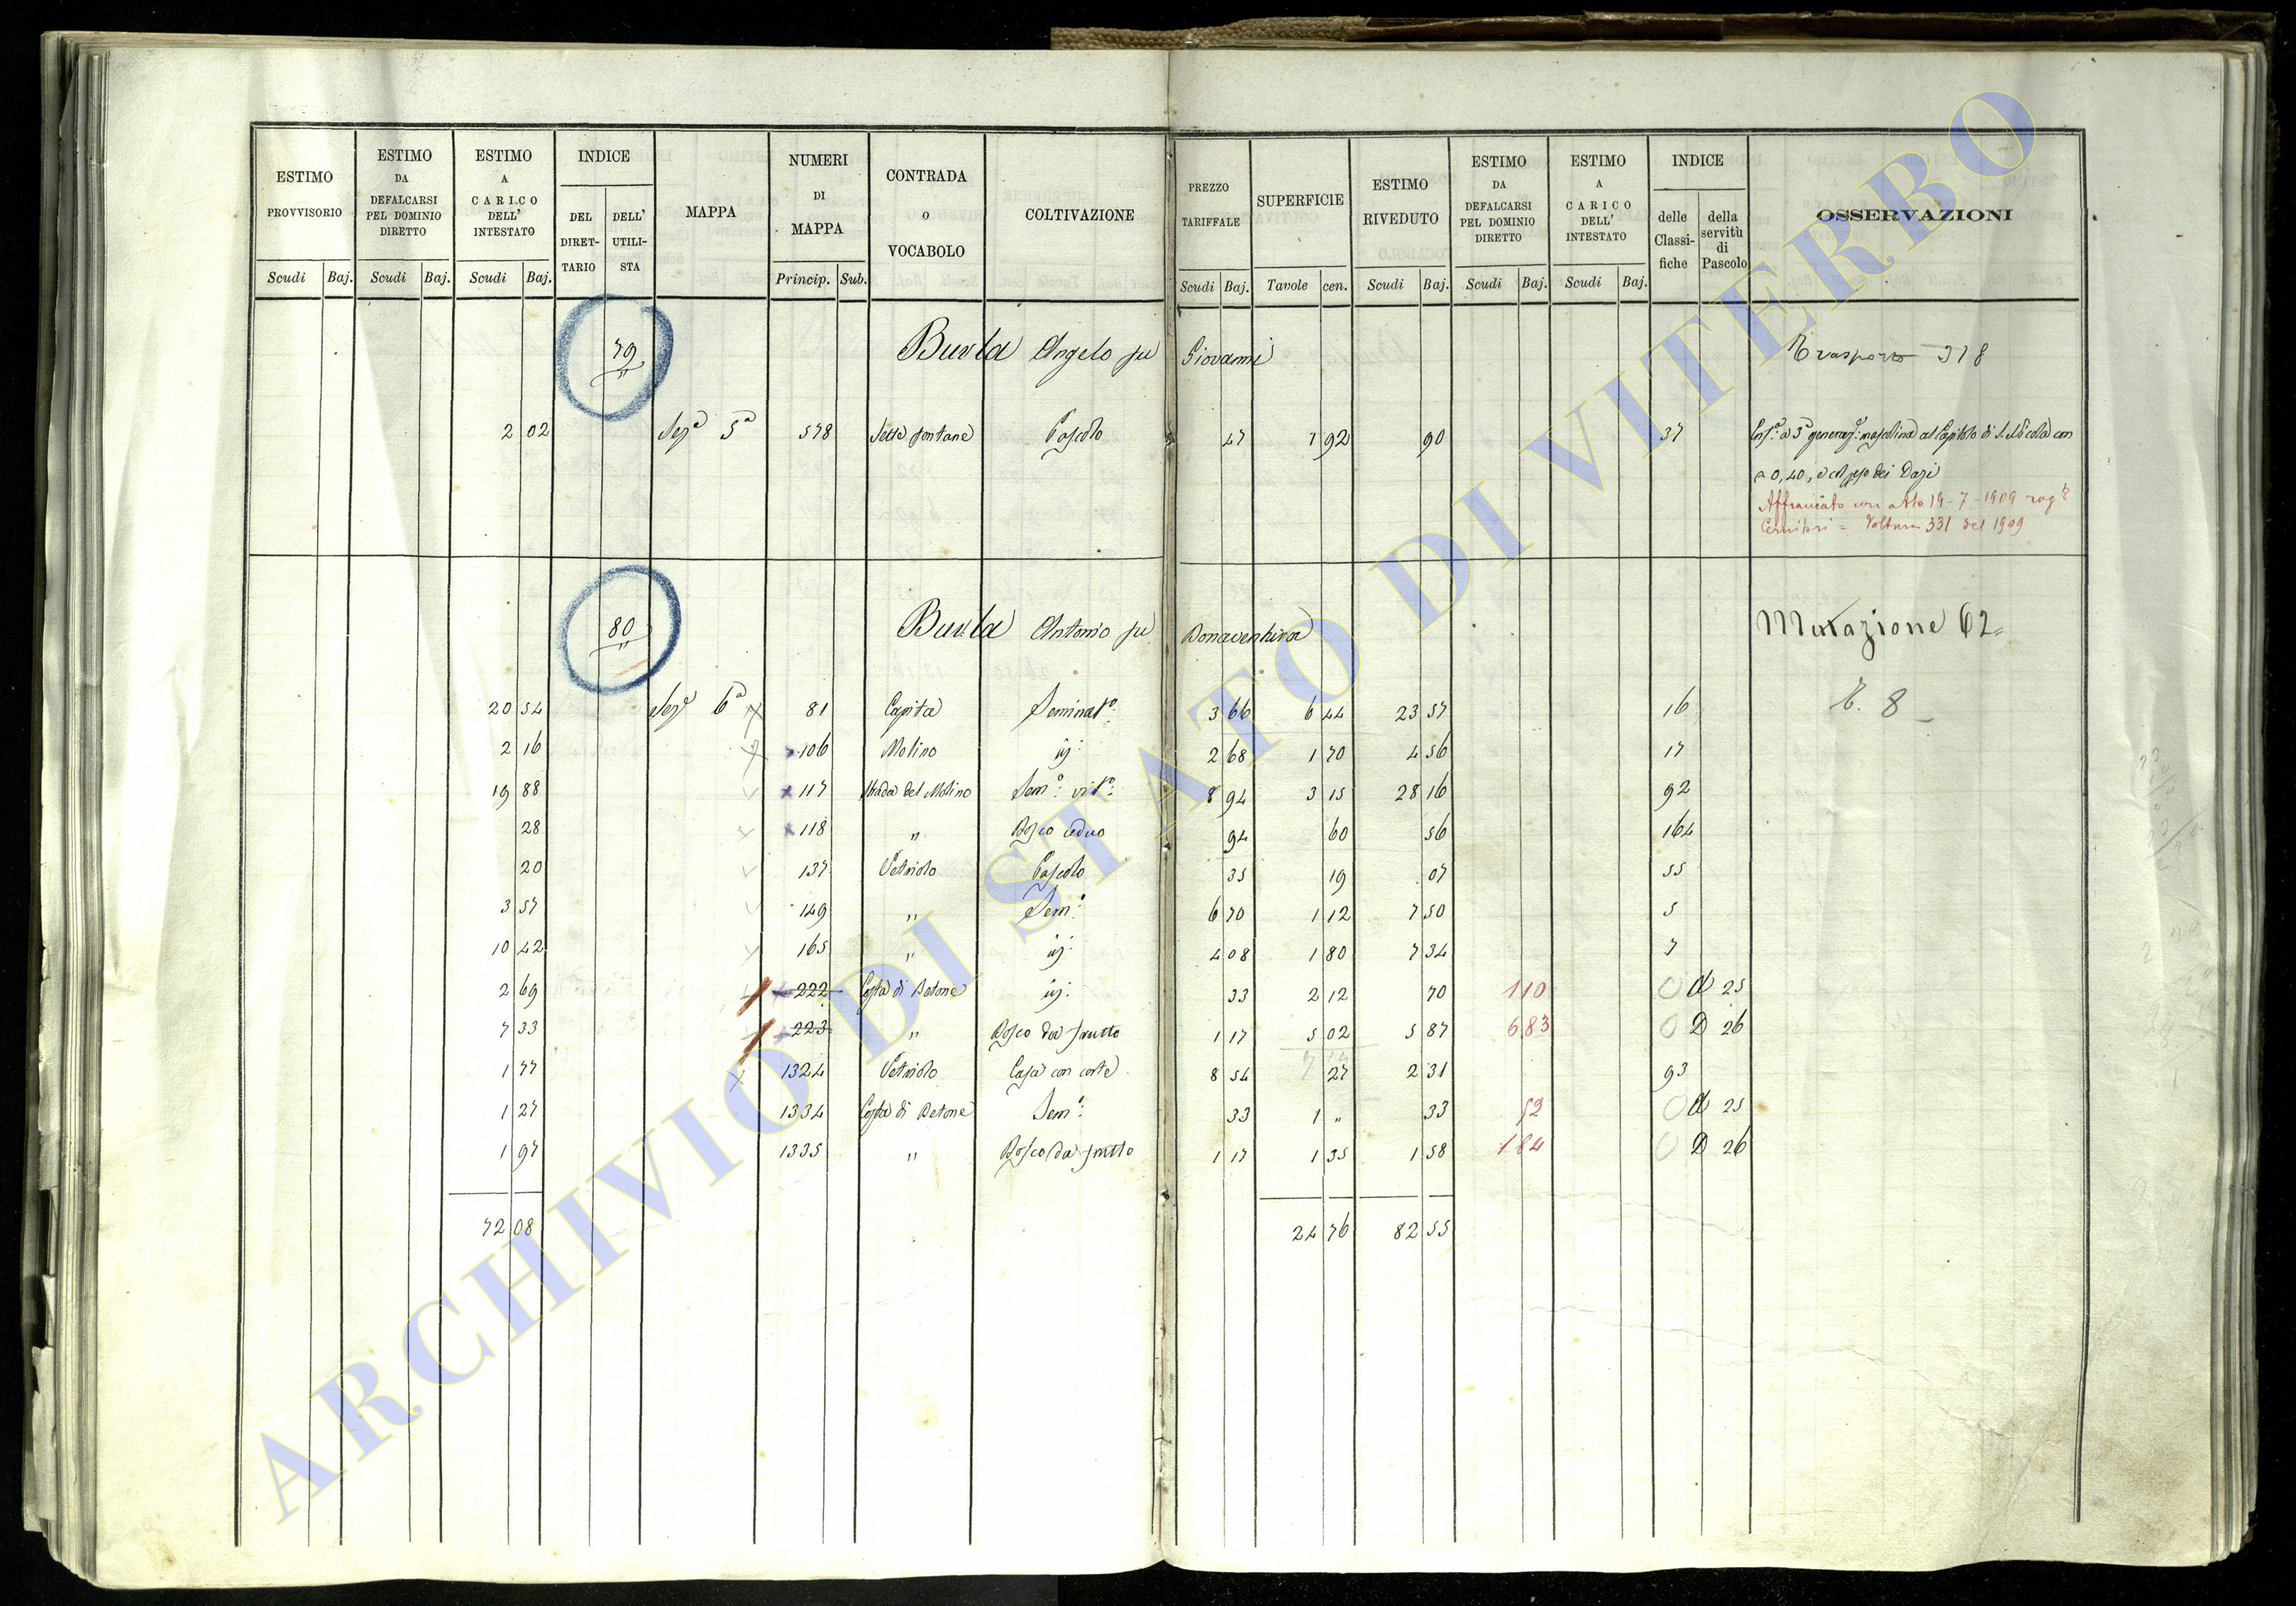 ESTIMO PROVVISORIO Scudi Baj.
ESTIMO DA DEFALCARSI PEL DOMINIO DIRETTO Scudi Baj.
ESTIMO A CARICO DELL' INTESTATO Scudi Baj.
INDICE DEL DIRET-TARIO DELL' UTILI-STA
MAPPA
NUMERI DI MAPPA Princip. Sub.
CONTRADA o VOCABOLO
COLTIVAZIONE
PREZZO TARIFFALE Scudi Baj.
SUPERFICIE Tavole cen.
ESTIMO RIVEDUTO Scudi Baj.
ESTIMO DA DEFALCARSI PEL DOMINIO DIRETTO Scudi Baj.
ESTIMO A CARICO DELL' INTESTATO Scudi Baj.
INDICE delle Classi-fiche della servitù di Pascolo
OSSERVAZIONI
79 Burla Angelo fu Giovanni Trasporto 318
2 02 Sez.e 5a 578 Sette fontane Pascolo 47 1 92 90 37 a 3a generaz.e mascolina al Capitolo di S. Nicola con
0,40, e col peso dei Dazi
Affrancato con atto 19-7-1909 rog.
Voltura 331 del 1909
80 Burla Antonio fu Bonaventura Mutazione 62
20 54 Sez.e 6a 81 Capita Seminat.o 3 66 6 44 23 57 16 T. 8
2 16 106 Molino id. 2 68 1 70 4 56 17
19 88 117 Strada del Molino Sem.o vit.o 8 94 3 15 28 16 92
28 118 " Bosco ceduo 94 60 56 164
20 137 Vetriolo Pascolo 35 19 07 55
3 57 149 " Sem.o 6 70 1 12 7 50 5
10 42 165 " id. 4 08 1 80 7 34 7
2 69 222 Costa di Betone id. 33 2 12 70 1 10 A 25
7 33 223 " Bosco da frutto 1 17 5 02 5 87 6 83 D 26
1 77 1324 Vetriolo Casa con corte 8 54 27 2 31 93
1 27 1334 Costa di Betone Sem.o 33 1 " 33 52 A 25
1 97 1335 " Bosco da frutto 1 17 1 35 1 58 1 84 D 26
72 08 24 76 82 55
ARCHIVIO DI STATO DI VITERBO